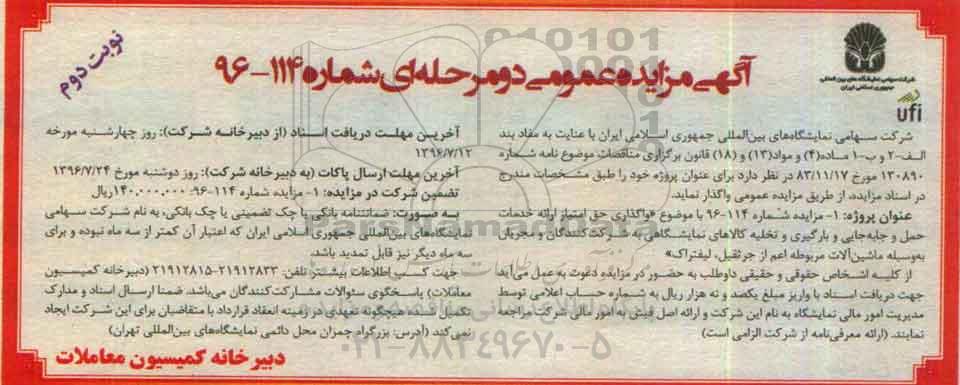 نوبت دوم
آگهی مزایده عمومی دو مرحله‌ای شماره ۱۱۴-۹۶
شرکت سهامی نمایشگاه های بین المللی
جمهوری اسلامی ایران
ufi
شرکت سهامی نمایشگاه‌های بین‌المللی جمهوری اسلامی ایران با عنایت به مفاد بند
الف-۲ و ب-۱ ماده(۴) و مواد(۱۳) و (۱۸) قانون برگزاری مناقصات موضوع نامه شماره
۱۳۰۸۹۰ مورخ ۸۳/۱۱/۱۷ در نظر دارد برای عنوان پروژه خود را طبق مشخصات مندرج
در اسناد مزایده، از طریق مزایده عمومی واگذار نماید.
عنوان پروژه: ۱- مزایده شماره ۱۱۴-۹۶ با موضوع «واگذاری حق امتیاز ارائه خدمات
حمل و جابه‌جایی و بارگیری و تخلیه کالاهای نمایشگاهی به شرکت‌کنندگان و مجریان
به‌وسیله ماشین‌آلات مربوطه اعم از جرثقیل، لیفتراک»
از کلیه اشخاص حقوقی و حقیقی داوطلب به حضور در مزایده دعوت به عمل می‌آید
جهت دریافت اسناد با واریز مبلغ یکصد و نه هزار ریال به شماره حساب اعلامی توسط
مدیریت امور مالی نمایشگاه به نام این شرکت و ارائه اصل فیش به امور مالی شرکت مراجعه
نمایند. (ارائه معرفی‌نامه از شرکت الزامی است)
آخرین مهلت دریافت اسناد (از دبیرخانه شرکت): روز چهارشنبه مورخه
۱۳۹۶/۷/۱۲
آخرین مهلت ارسال پاکات (به دبیرخانه شرکت): روز دوشنبه مورخ ۱۳۹۶/۷/۲۴
تضمین شرکت در مزایده: ۱- مزایده شماره ۱۱۴-۹۶: ۱۴۰,۰۰۰,۰۰۰ ریال
به صورت: ضمانتنامه بانکی یا چک تضمینی یا چک بانکی، به نام شرکت سهامی
نمایشگاه‌های بین‌المللی جمهوری اسلامی ایران که اعتبار آن کمتر از سه ماه نبوده و برای
سه ماه دیگر نیز قابل تمدید باشد.
جهت کسب اطلاعات بیشتر تلفن: ۲۱۹۱۲۸۳۳-۲۱۹۱۲۸۱۵ (دبیرخانه کمیسیون
معاملات) پاسخگوی سئوالات مشارکت‌کنندگان می‌باشد. ضمنا ارسال اسناد و مدارک
تکمیل شده هیچگونه تعهدی در زمینه انعقاد قرارداد با متقاضیان برای این شرکت ایجاد
نمی‌کند (آدرس: بزرگراه چمران محل دائمی نمایشگاه‌های بین‌المللی تهران)
دبیرخانه کمیسیون معاملات
۰۲۱-۸۸۳۴۹۶۷۰-۵